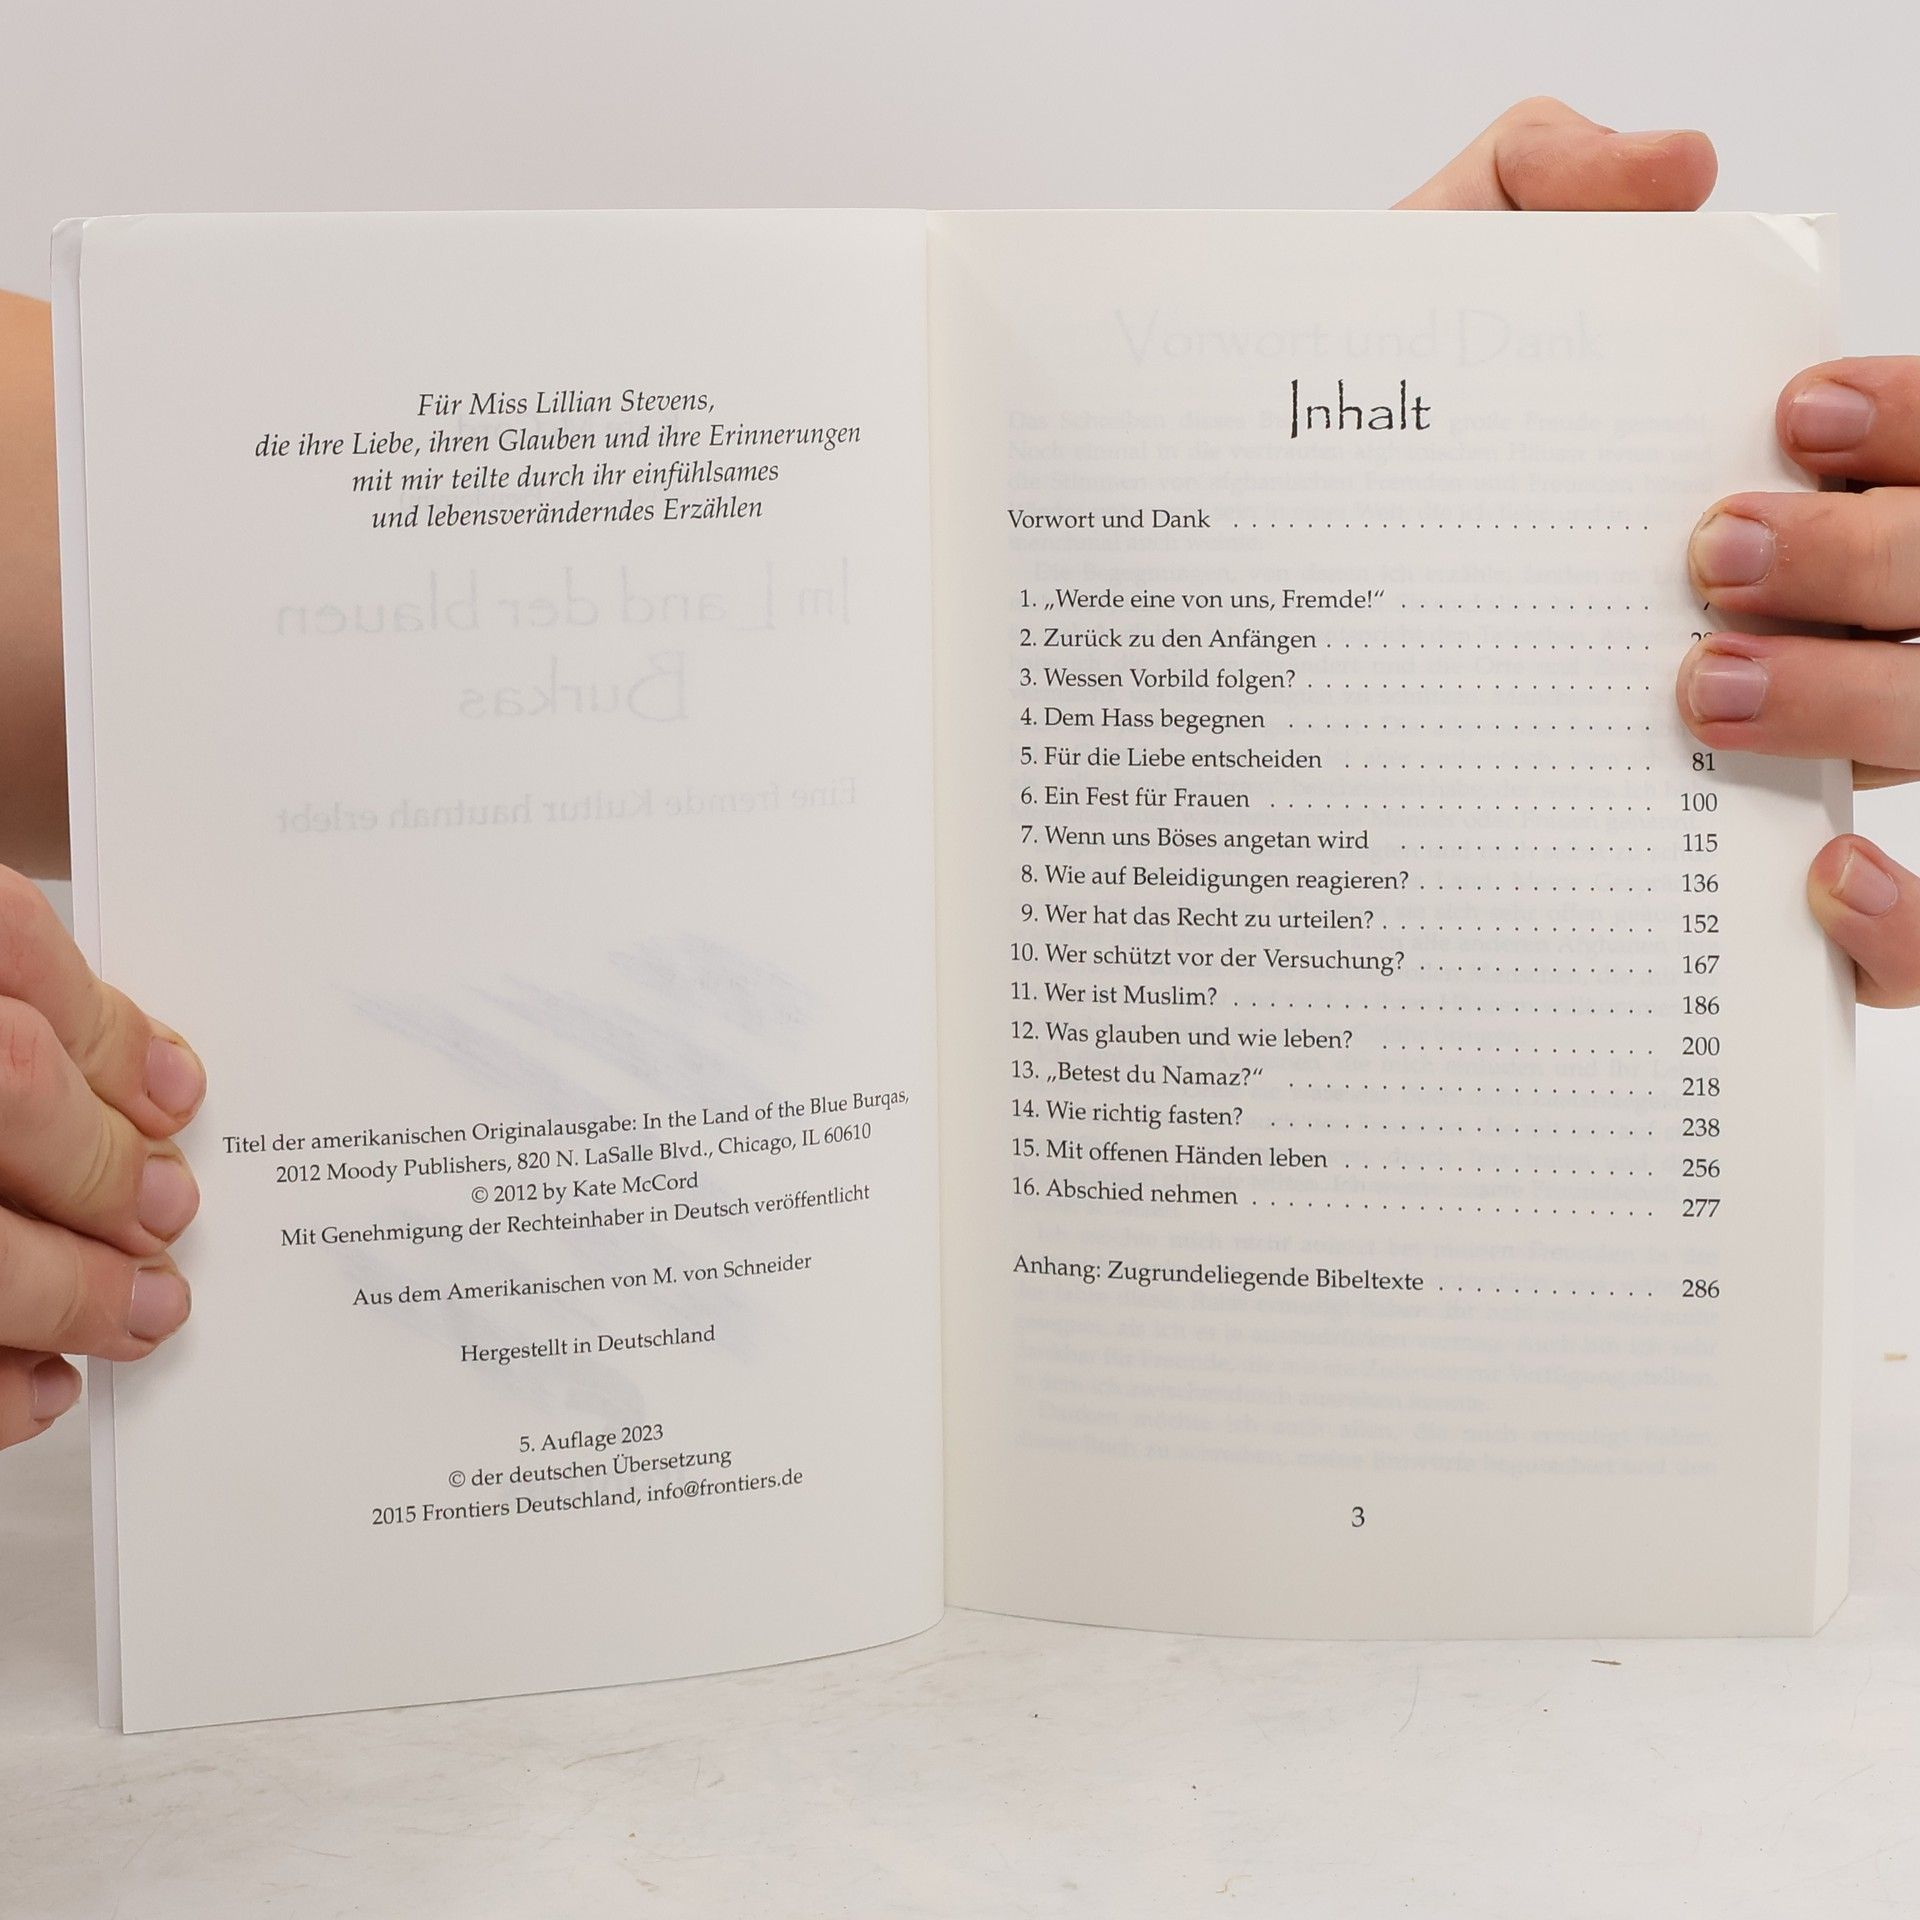 Für Miss Lillian Stevens,
die ihre Liebe, ihren Glauben und ihre Erinnerungen
mit mir teilte durch ihr einfühlsames
und lebensveränderndes Erzählen
Im Land der blauen
Burkas
Eine fremde Kultur hautnah erlebt
Titel der amerikanischen Originalausgabe: In the Land of the Blue Burqas,
2012 Moody Publishers, 820 N. LaSalle Blvd., Chicago, IL 60610
© 2012 by Kate McCord
Mit Genehmigung der Rechteinhaber in Deutsch veröffentlicht
Aus dem Amerikanischen von M. von Schneider
Hergestellt in Deutschland
5. Auflage 2023
© der deutschen Übersetzung
2015 Frontiers Deutschland, info@frontiers.de
Vorwort und Dank
Inhalt
Vorwort und Dank . . . . . . . . . . . . . . . . . . . . . . .
1. „Werde eine von uns, Fremde!“ . . . . . . . . . . . . . .
2. Zurück zu den Anfängen . . . . . . . . . . . . . . . . . .
3. Wessen Vorbild folgen? . . . . . . . . . . . . . . . . . . .
4. Dem Hass begegnen . . . . . . . . . . . . . . . . . . . .
5. Für die Liebe entscheiden . . . . . . . . . . . . . . . . . 81
6. Ein Fest für Frauen . . . . . . . . . . . . . . . . . . . . . 100
7. Wenn uns Böses angetan wird . . . . . . . . . . . . . . 115
8. Wie auf Beleidigungen reagieren? . . . . . . . . . . . . . 136
9. Wer hat das Recht zu urteilen? . . . . . . . . . . . . . . . 152
10. Wer schützt vor der Versuchung? . . . . . . . . . . . . . 167
11. Wer ist Muslim? . . . . . . . . . . . . . . . . . . . . . . . 186
12. Was glauben und wie leben? . . . . . . . . . . . . . . . 200
13. „Betest du Namaz?“ . . . . . . . . . . . . . . . . . . . . 218
14. Wie richtig fasten? . . . . . . . . . . . . . . . . . . . . . 238
15. Mit offenen Händen leben . . . . . . . . . . . . . . . . . 256
16. Abschied nehmen . . . . . . . . . . . . . . . . . . . . . . 277
Anhang: Zugrundeliegende Bibeltexte . . . . . . . . . . . . 286
3